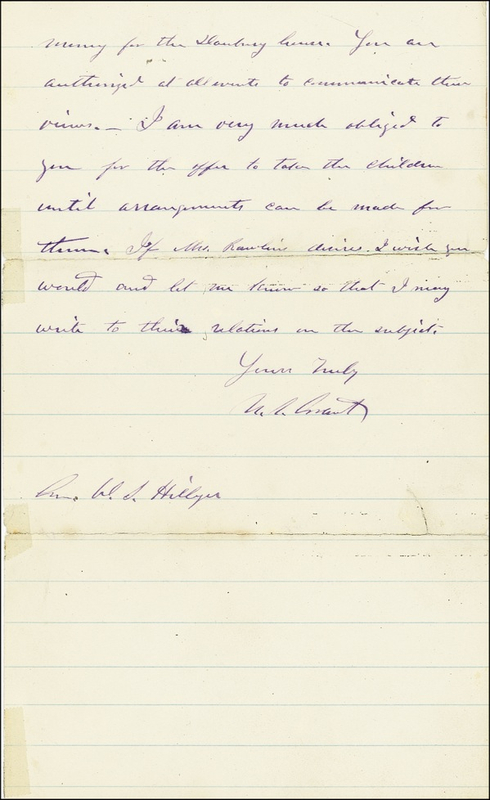 money for the Danbury house. You are
authorized at all events to communicate these
views. — I am very much obliged to
you for the offer to take the children
until arrangements can be made for
them. If Mrs. Rawlins desires I wish you
would and let me know so that I may
write to their relations on the subject.
Yours Truly
U. S. Grant
Gen. W. S. Hillyer